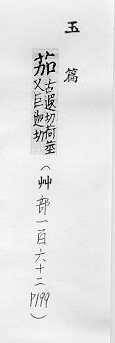 玉篇
茄古遐切荷莖又巨迦切（艸部一百六十二P199）